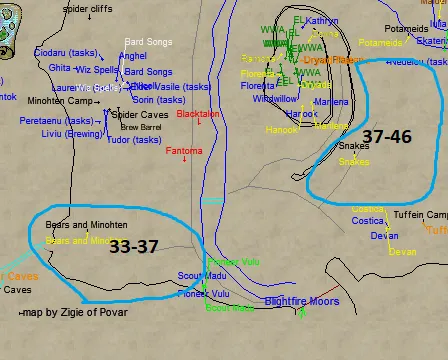 spider cliffs
Kathryn
Bard Songs
Potameids
Potameids
Ciodaru (tasks)
Anghel
Ghita
Wiz Spells
Bard Songs
Florenta
Dryad
Vasile (tasks)
Florenta
Dryads
Sorin (tasks)
Minohten Camp
Willdwillow
Mariena
Spider Caves
Blacktalon
Harook
Peretaenu (tasks)
Brew Barrel
Hanook
Mariena
Liviu (Brewing)
Tudor (tasks)
37-46
Snakes
Fantoma
Snakes
Costica
Costica
Tuffein Camp
Bears and Minohten
Devan
33-37
Devan
Pioneer Vulu
Scout Madu
Caves
Pioneer Vulu
Blightfire Moors
Scout Madu
map by Zigie of Povar